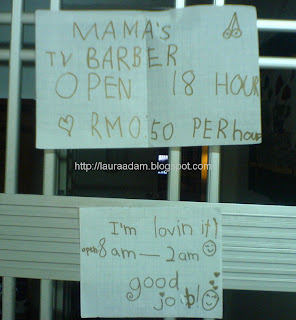 MAMA's
TV BARBER
OPEN 18 HOUR
♡ RM0.50 PER hour
http://lauraadam.blogspot.com
I'm lovin it!
open 8 am — 2am
good
job!